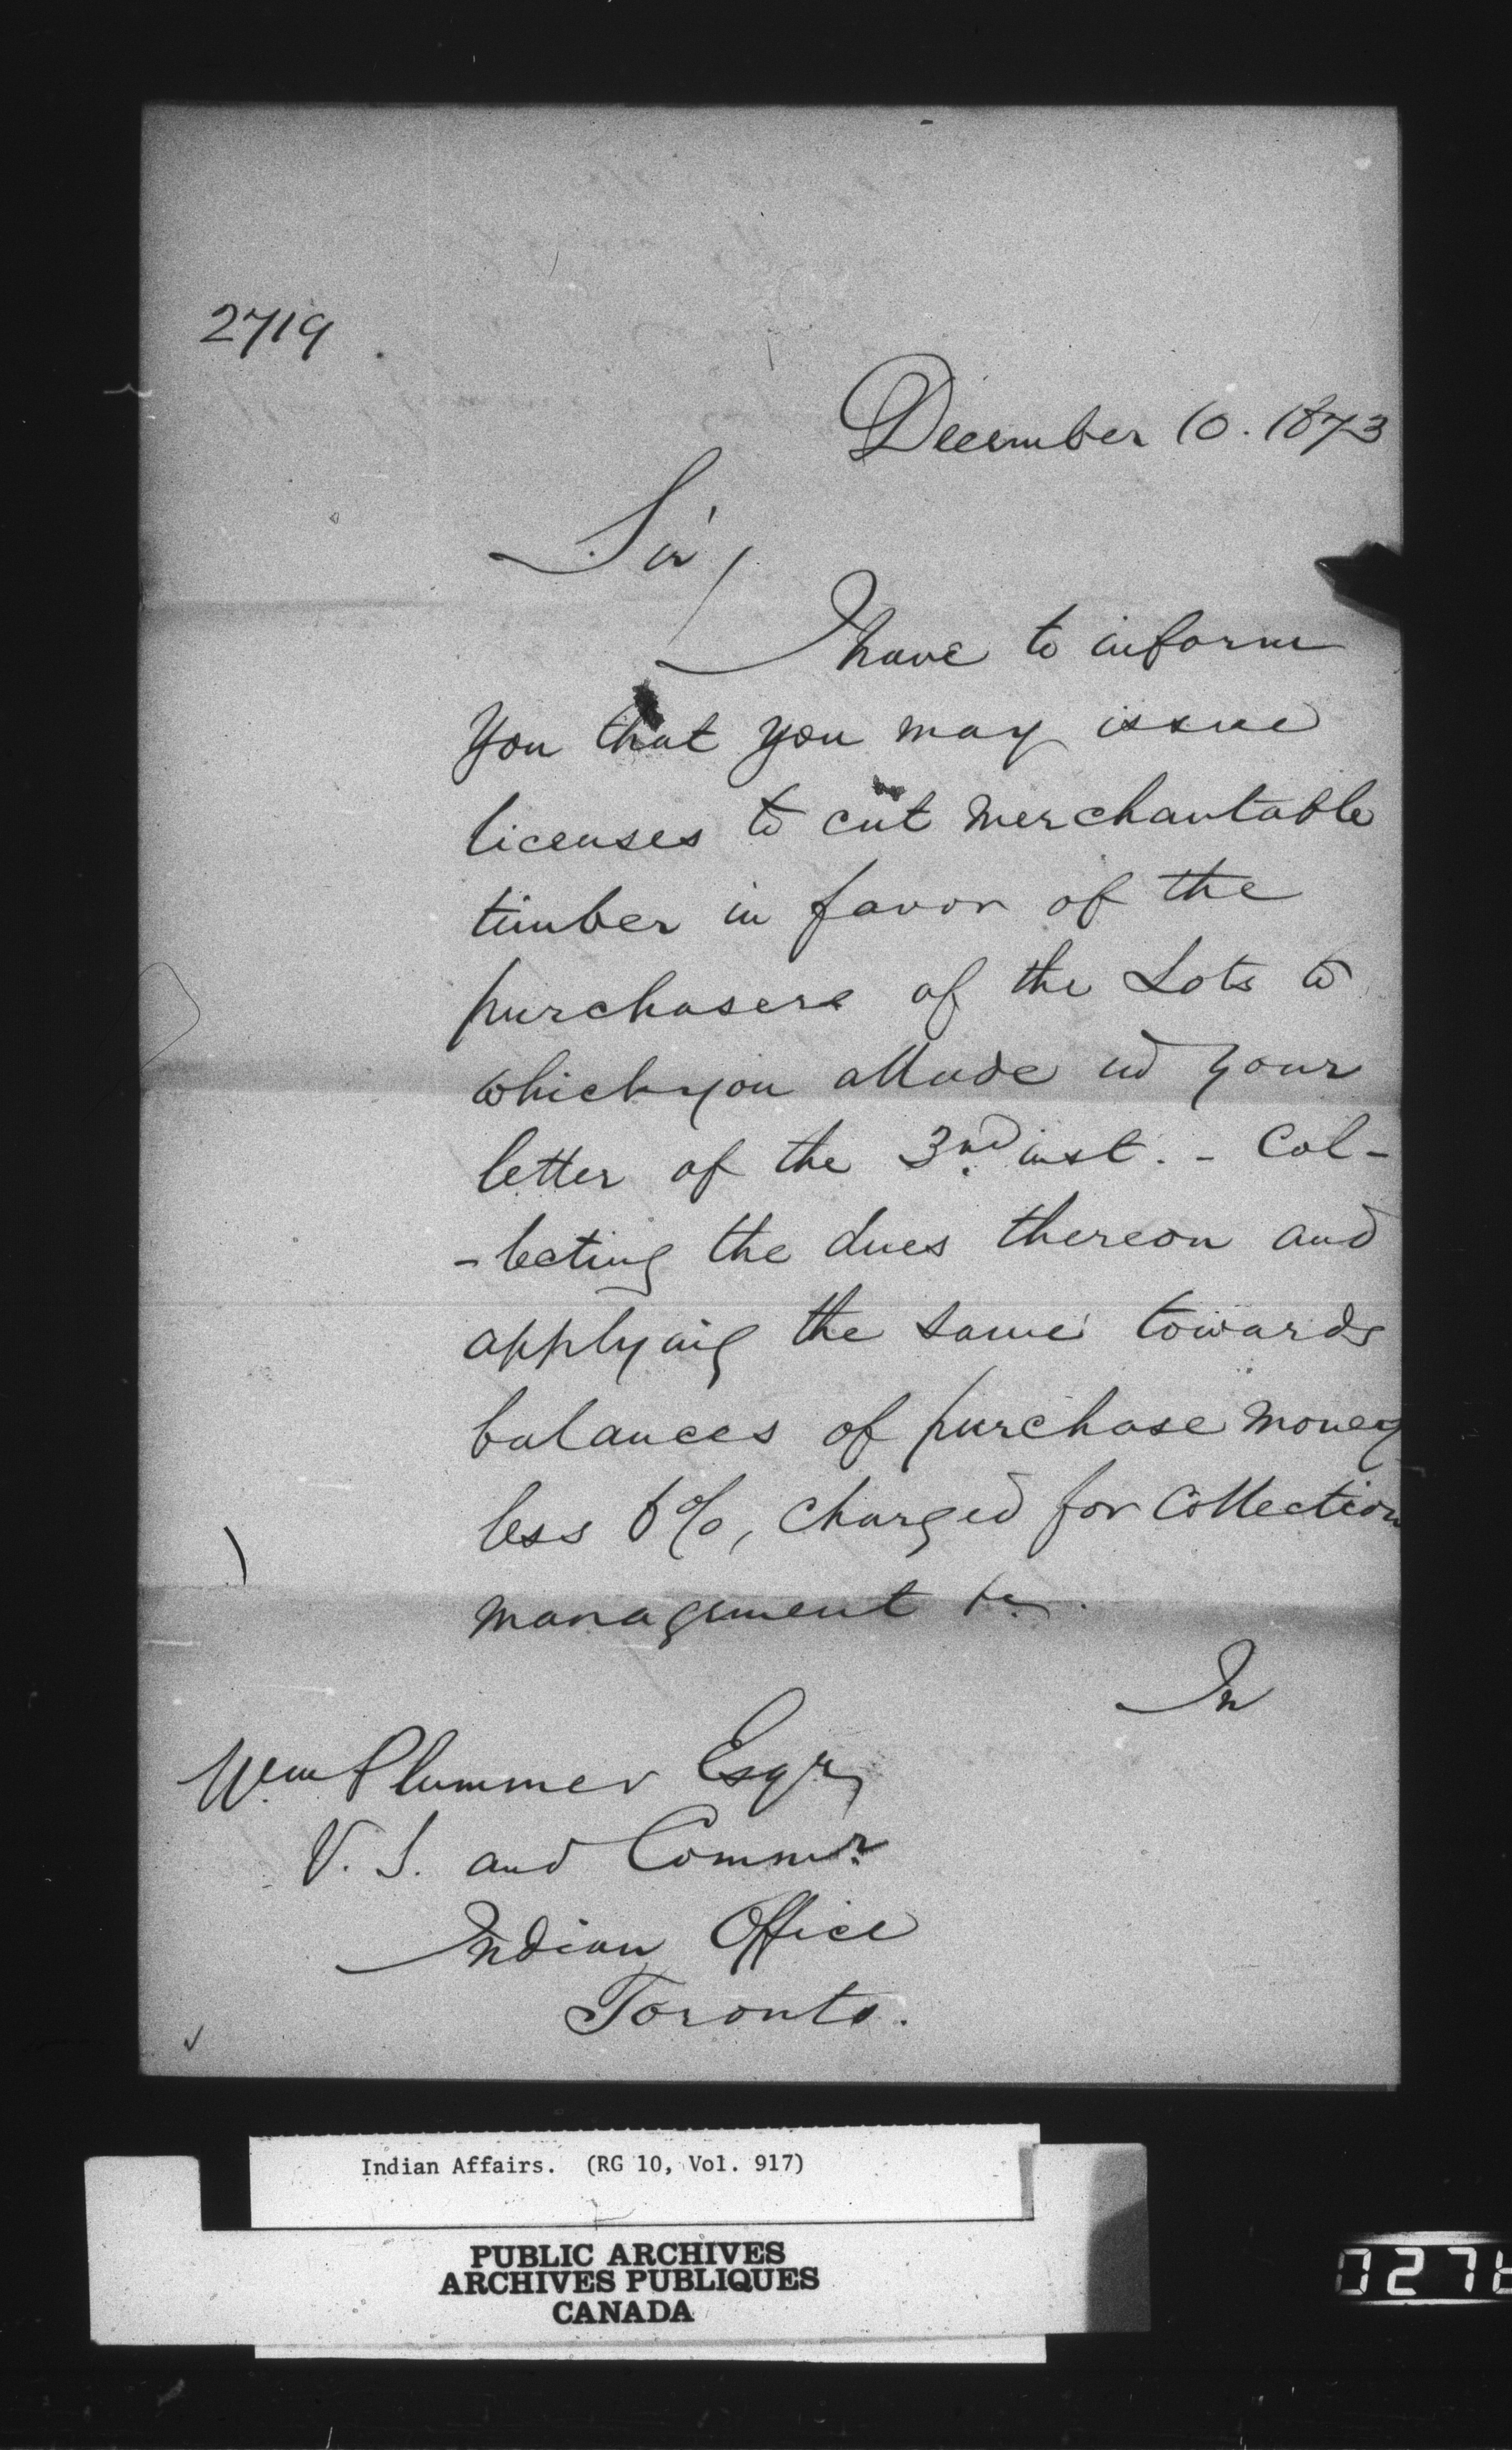 2719
December 10. 1873
Sir,
I have to inform
you that you may issue
licenses to cut merchantable
timber in favor of the
purchasers of the Lots to
which you allude in your
letter of the 3rd inst. - Col-
-lecting the dues thereon and
applying the same towards
balances of purchase money
less 6%, charged for Collection
management &c.
In
Wm Plummer Esqr,
V. S. and Commr.
Indian Office
Toronto.
Indian Affairs. (RG 10, Vol. 917)
PUBLIC ARCHIVES
ARCHIVES PUBLIQUES
CANADA